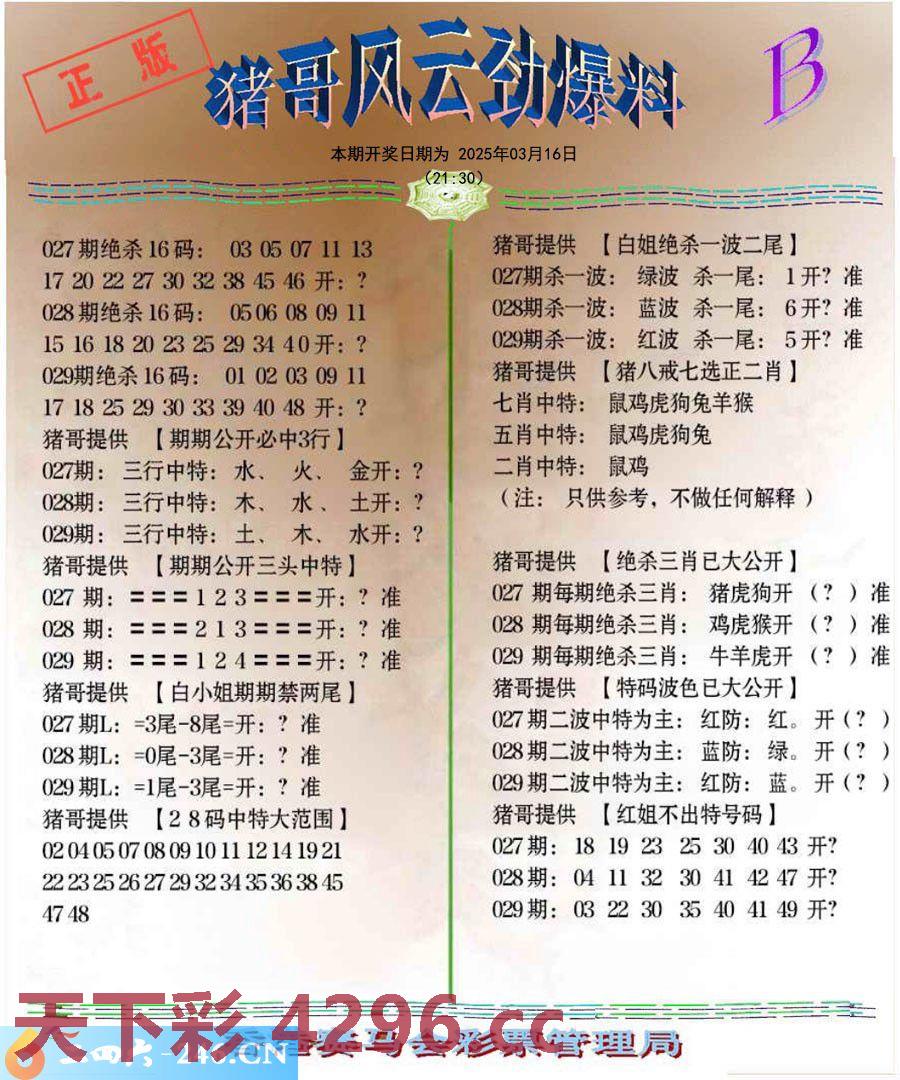 正版
猪哥风云劲爆料
B
本期开奖日期为 2025年03月16日
(21:30)
027期绝杀16码： 03 05 07 11 13
17 20 22 27 30 32 38 45 46 开：?
028期绝杀16码： 05 06 08 09 11
15 16 18 20 23 25 29 34 40 开：?
029期绝杀16码： 01 02 03 09 11
17 18 25 29 30 33 39 40 48 开：?
猪哥提供 【期期公开必中3行】
027期： 三行中特：水、 火、 金开：?
028期： 三行中特：木、 水、 土开：?
029期： 三行中特：土、 木、 水开：?
猪哥提供 【期期公开三头中特】
027 期：===1 2 3===开：? 准
028 期：===2 1 3===开：? 准
029 期：===1 2 4===开：? 准
猪哥提供 【白小姐期期禁两尾】
027期L：=3尾-8尾=开：? 准
028期L：=0尾-3尾=开：? 准
029期L：=1尾-3尾=开：? 准
猪哥提供 【28码中特大范围】
02 04 05 07 08 09 10 11 12 14 19 21
22 23 25 26 27 29 32 34 35 36 38 45
47 48
猪哥提供 【白姐绝杀一波二尾】
027期杀一波： 绿波 杀一尾： 1开? 准
028期杀一波： 蓝波 杀一尾： 6开? 准
029期杀一波： 红波 杀一尾： 5开? 准
猪哥提供 【猪八戒七选正二肖】
七肖中特： 鼠鸡虎狗兔羊猴
五肖中特： 鼠鸡虎狗兔
二肖中特： 鼠鸡
（注： 只供参考，不做任何解释）
猪哥提供 【绝杀三肖已大公开】
027 期每期绝杀三肖： 猪虎狗开 （?）准
028 期每期绝杀三肖： 鸡虎猴开 （?）准
029 期每期绝杀三肖： 牛羊虎开 （?）准
猪哥提供 【特码波色已大公开】
027期二波中特为主：红防：红。开（?）
028期二波中特为主：蓝防：绿。开（?）
029期二波中特为主：红防：蓝。开（?）
猪哥提供 【红姐不出特号码】
027期： 18 19 23 25 30 40 43 开?
028期： 04 11 32 30 41 42 47 开?
029期： 03 22 30 35 40 41 49 开?
天下彩 4296.cc
二四六-246.CN
马会彩票管理局